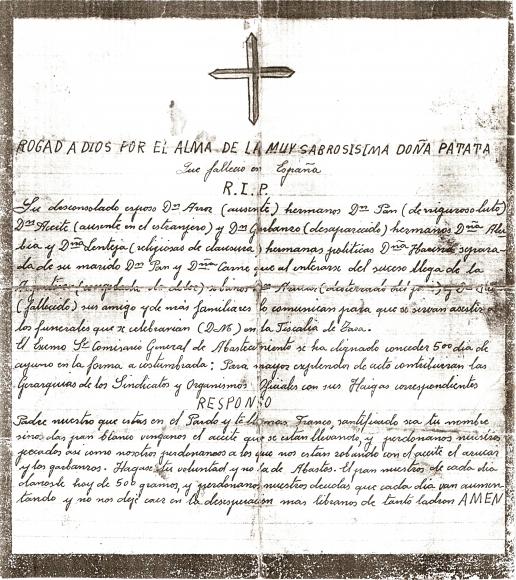 ROGAD A DIOS POR EL ALMA DE LA MUY SABROSISIMA DOÑA PATATA
Que fallecio en España
R.I.P.
Su desconsolado esposo Dn Arroz (ausente) hermanos Dn Pan (de riguroso luto)
Dn Aceite (ausente en el estranjero) y Dn Garbanzo (desaparecido) hermanas Dña Alu
bia y Dña Lenteja (religiosas de clausura) hermanas politicas Dña Harina separa
da de su marido Dn Pan y Dña Carne que al enterarse del suceso llega de la
Argentina (congelada de dolor)
(fallecido) sus amigo y de más familiares lo comunican para que se sirvan asistir
los funerales que se celebrarian (D.M.) en la Fiscalia de Tasa.
El Exsmo Sr Comisario General de Abastecimiento se ha dignado conceder 500 dia de
ayuno en la forma a costumbrada: Para mayor explendor de acto contituiran las
Gerarquias de los Sindicatos y Organismos Oficiales con sus Haigas correspondientes
RESPONSO
Padre nuestro que estas en el Pardo y te llamas Franco, santificado sea tu nombre
sinos das pan blanco venganos el aceite que se estan llevando, y perdonanos nuestros
pecados asi como nosotros perdonamos a los que nos estan robando con el aceite el azucar
y los garbanzos. Hagase tu voluntad y no la de Abastos. El pan nuestro de cada dia
danosle hoy de 500 gramos, y perdonanos nuestros deudas que cada dia van aumen
tando y no nos deje caer en la desesperacion mas libranos de tanto ladron AMEN